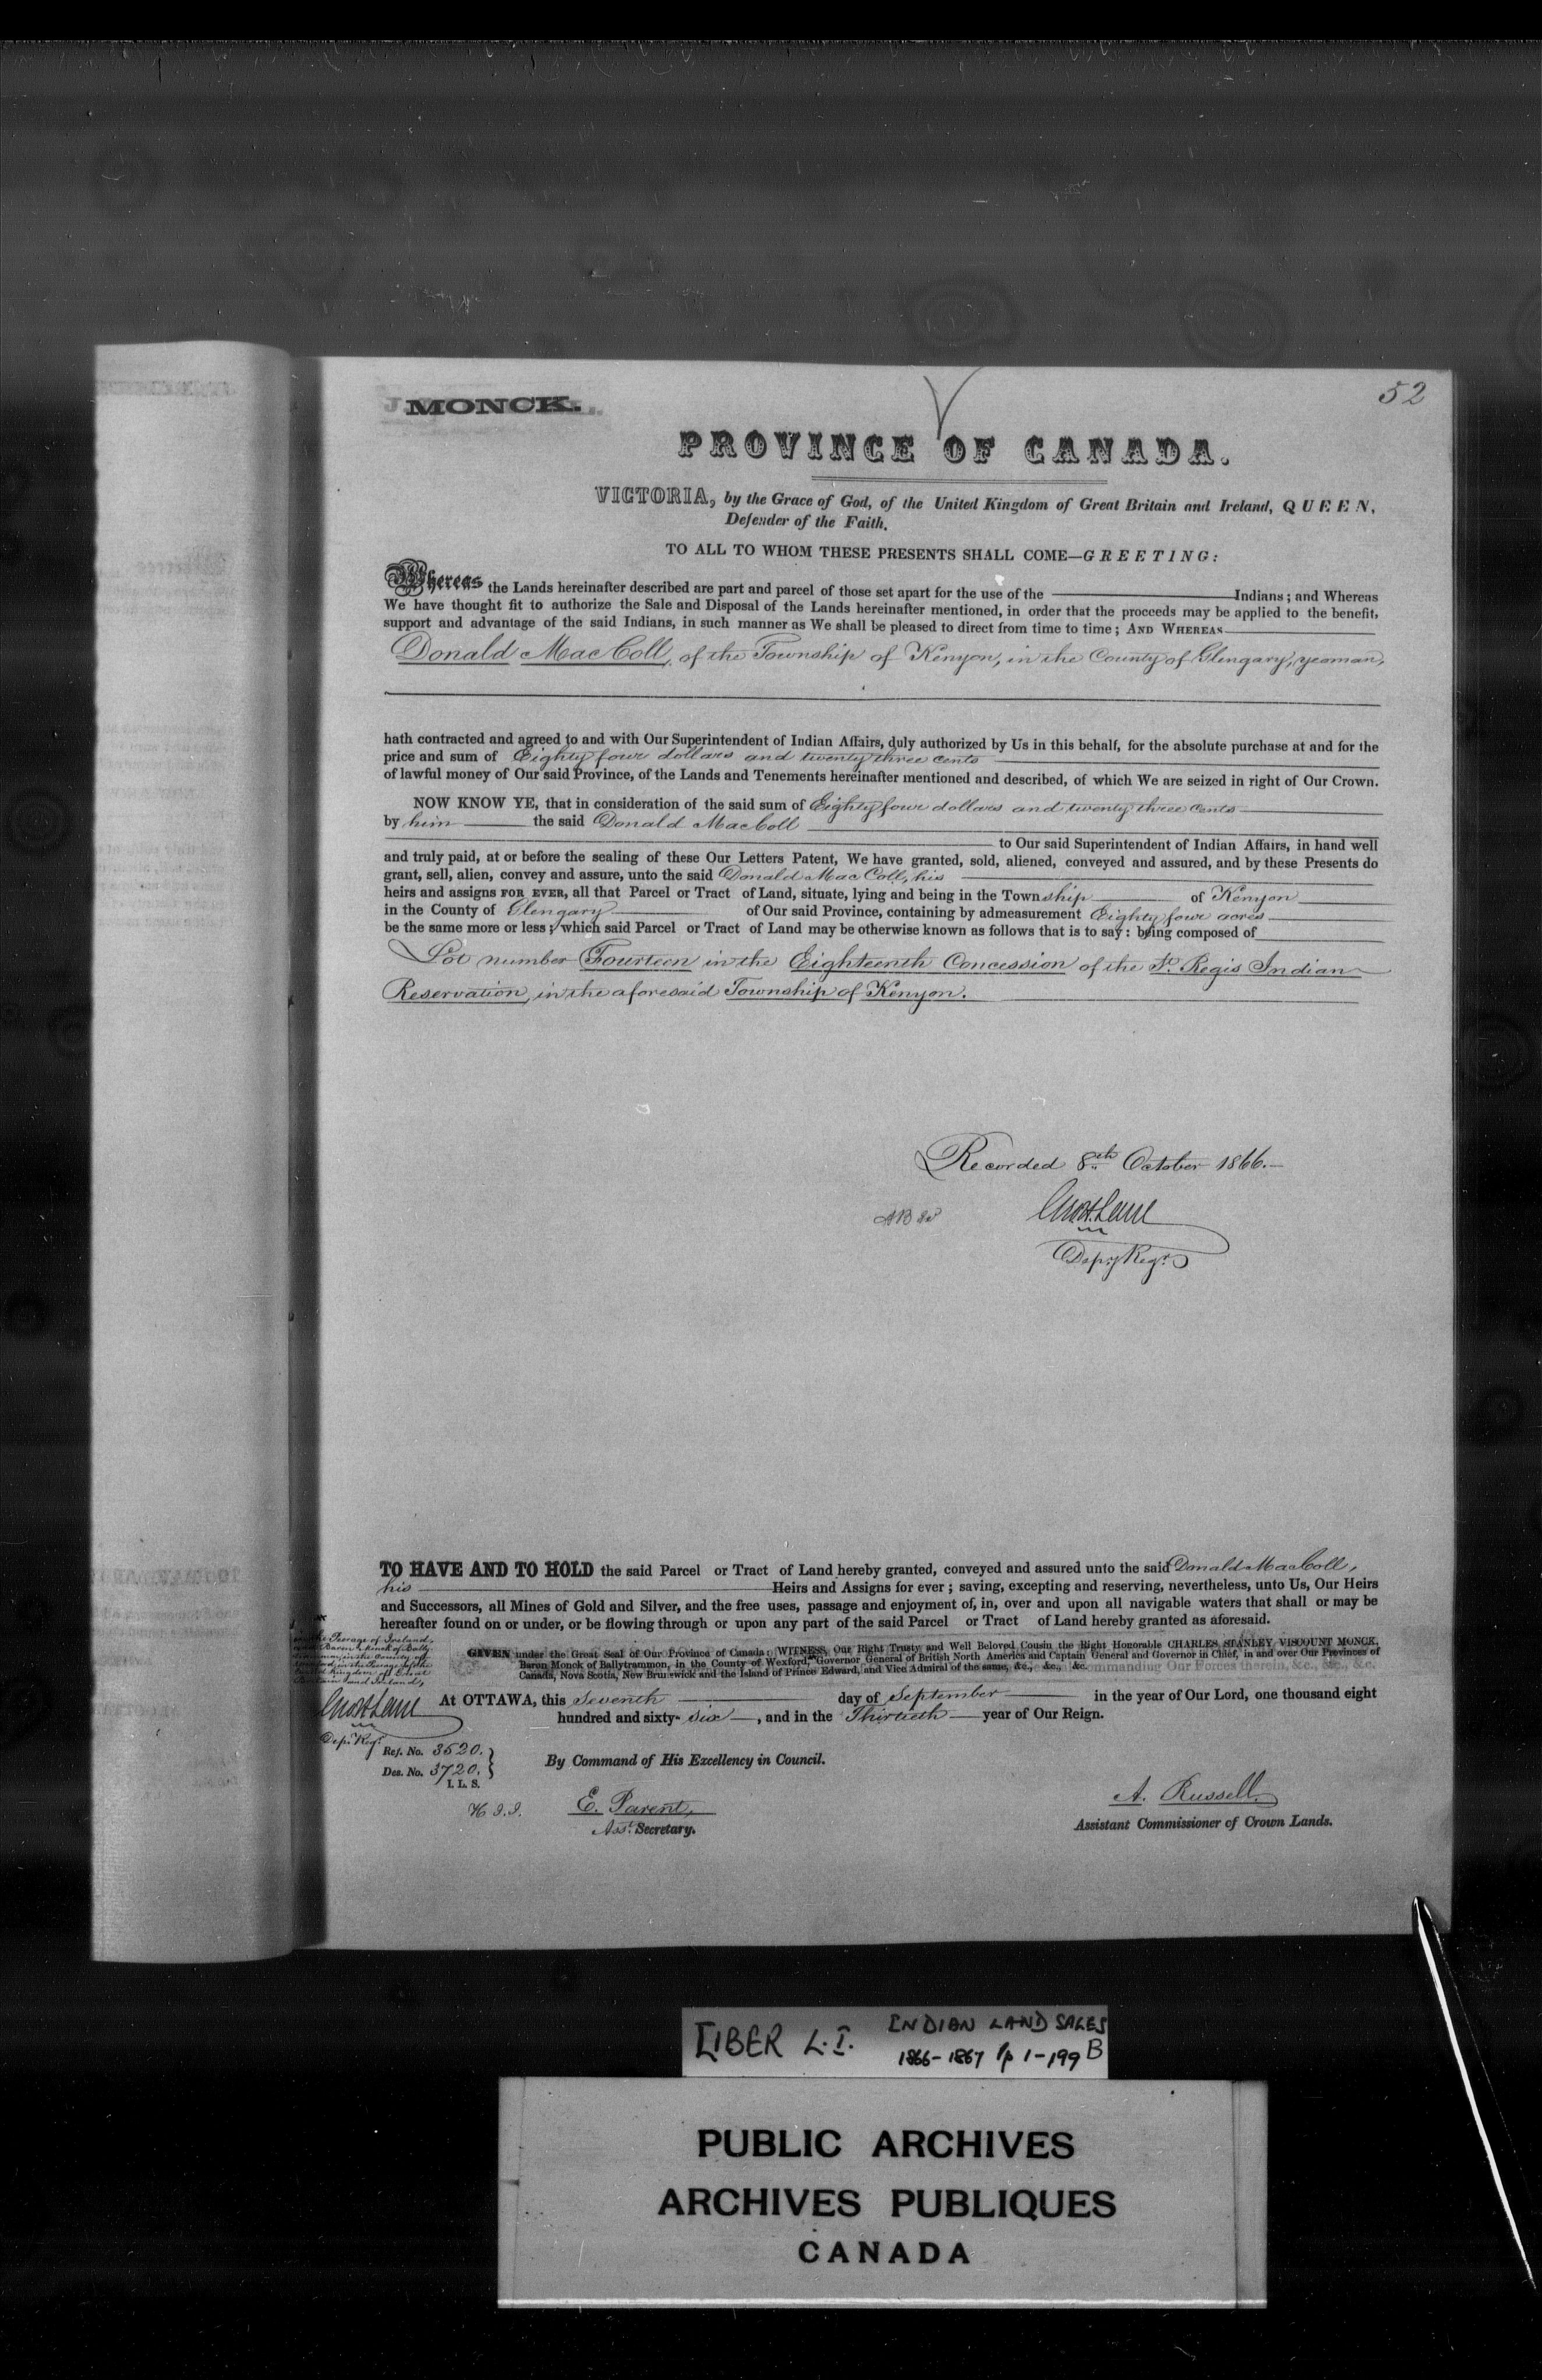 52
MONCK.
PROVINCE OF CANADA.
VICTORIA, by the Grace of God, of the United Kingdom of Great Britain and Ireland, QUEEN,
Defender of the Faith.
TO ALL TO WHOM THESE PRESENTS SHALL COME—GREETING:
Whereas the Lands hereinafter described are part and parcel of those set apart for the use of the Indians; and Whereas
We have thought fit to authorize the Sale and Disposal of the Lands hereinafter mentioned, in order that the proceeds may be applied to the benefit,
support and advantage of the said Indians, in such manner as We shall be pleased to direct from time to time; AND WHEREAS
Donald MacColl, of the Township of Kenyon, in the County of Glengary, yeoman,
hath contracted and agreed to and with Our Superintendent of Indian Affairs, duly authorized by Us in this behalf, for the absolute purchase at and for the
price and sum of Eighty four dollars and twenty three cents
of lawful money of Our said Province, of the Lands and Tenements hereinafter mentioned and described, of which We are seized in right of Our Crown.
NOW KNOW YE, that in consideration of the said sum of Eighty four dollars and twenty three cents
by him the said Donald MacColl
to Our said Superintendent of Indian Affairs, in hand well
and truly paid, at or before the sealing of these Our Letters Patent, We have granted, sold, aliened, conveyed and assured, and by these Presents do
grant, sell, alien, convey and assure, unto the said Donald MacColl, his
heirs and assigns FOR EVER, all that Parcel or Tract of Land, situate, lying and being in the Township of Kenyon
in the County of Glengary of Our said Province, containing by admeasurement Eighty four acres
be the same more or less; which said Parcel or Tract of Land may be otherwise known as follows that is to say: being composed of
Lot number Fourteen in the Eighteenth Concession of the St. Regis Indian
Reservation, in the aforesaid Township of Kenyon.
Recorded 8th October 1866.
Depy Regr
TO HAVE AND TO HOLD the said Parcel or Tract of Land hereby granted, conveyed and assured unto the said Donald MacColl,
his Heirs and Assigns for ever; saving, excepting and reserving, nevertheless, unto Us, Our Heirs
and Successors, all Mines of Gold and Silver, and the free uses, passage and enjoyment of, in, over and upon all navigable waters that shall or may be
hereafter found on or under, or be flowing through or upon any part of the said Parcel or Tract of Land hereby granted as aforesaid.
Peerage of Ireland,
GIVEN under the Great Seal of Our Province of Canada: WITNESS, Our Right Trusty and Well Beloved Cousin the Right Honorable CHARLES STANLEY VISCOUNT MONCK,
Baron Monck of Ballytrammon, in the County of Wexford, Governor General of British North America and Captain General and Governor in Chief, in and over Our Provinces of
Canada, Nova Scotia, New Brunswick and the Island of Prince Edward, and Vice Admiral of the same, &c., &c., &c.
At OTTAWA, this Seventh day of September in the year of Our Lord, one thousand eight
hundred and sixty-six, and in the Thirtieth year of Our Reign.
Depy Regr
Ref. No. 3520.
Des. No. 3720.
I. L. S.
By Command of His Excellency in Council.
E. Parent,
Asst. Secretary.
A. Russell
Assistant Commissioner of Crown Lands.
LIBER L.I. INDIAN LAND SALES
1866-1867 pp 1-199 B
PUBLIC ARCHIVES
ARCHIVES PUBLIQUES
CANADA